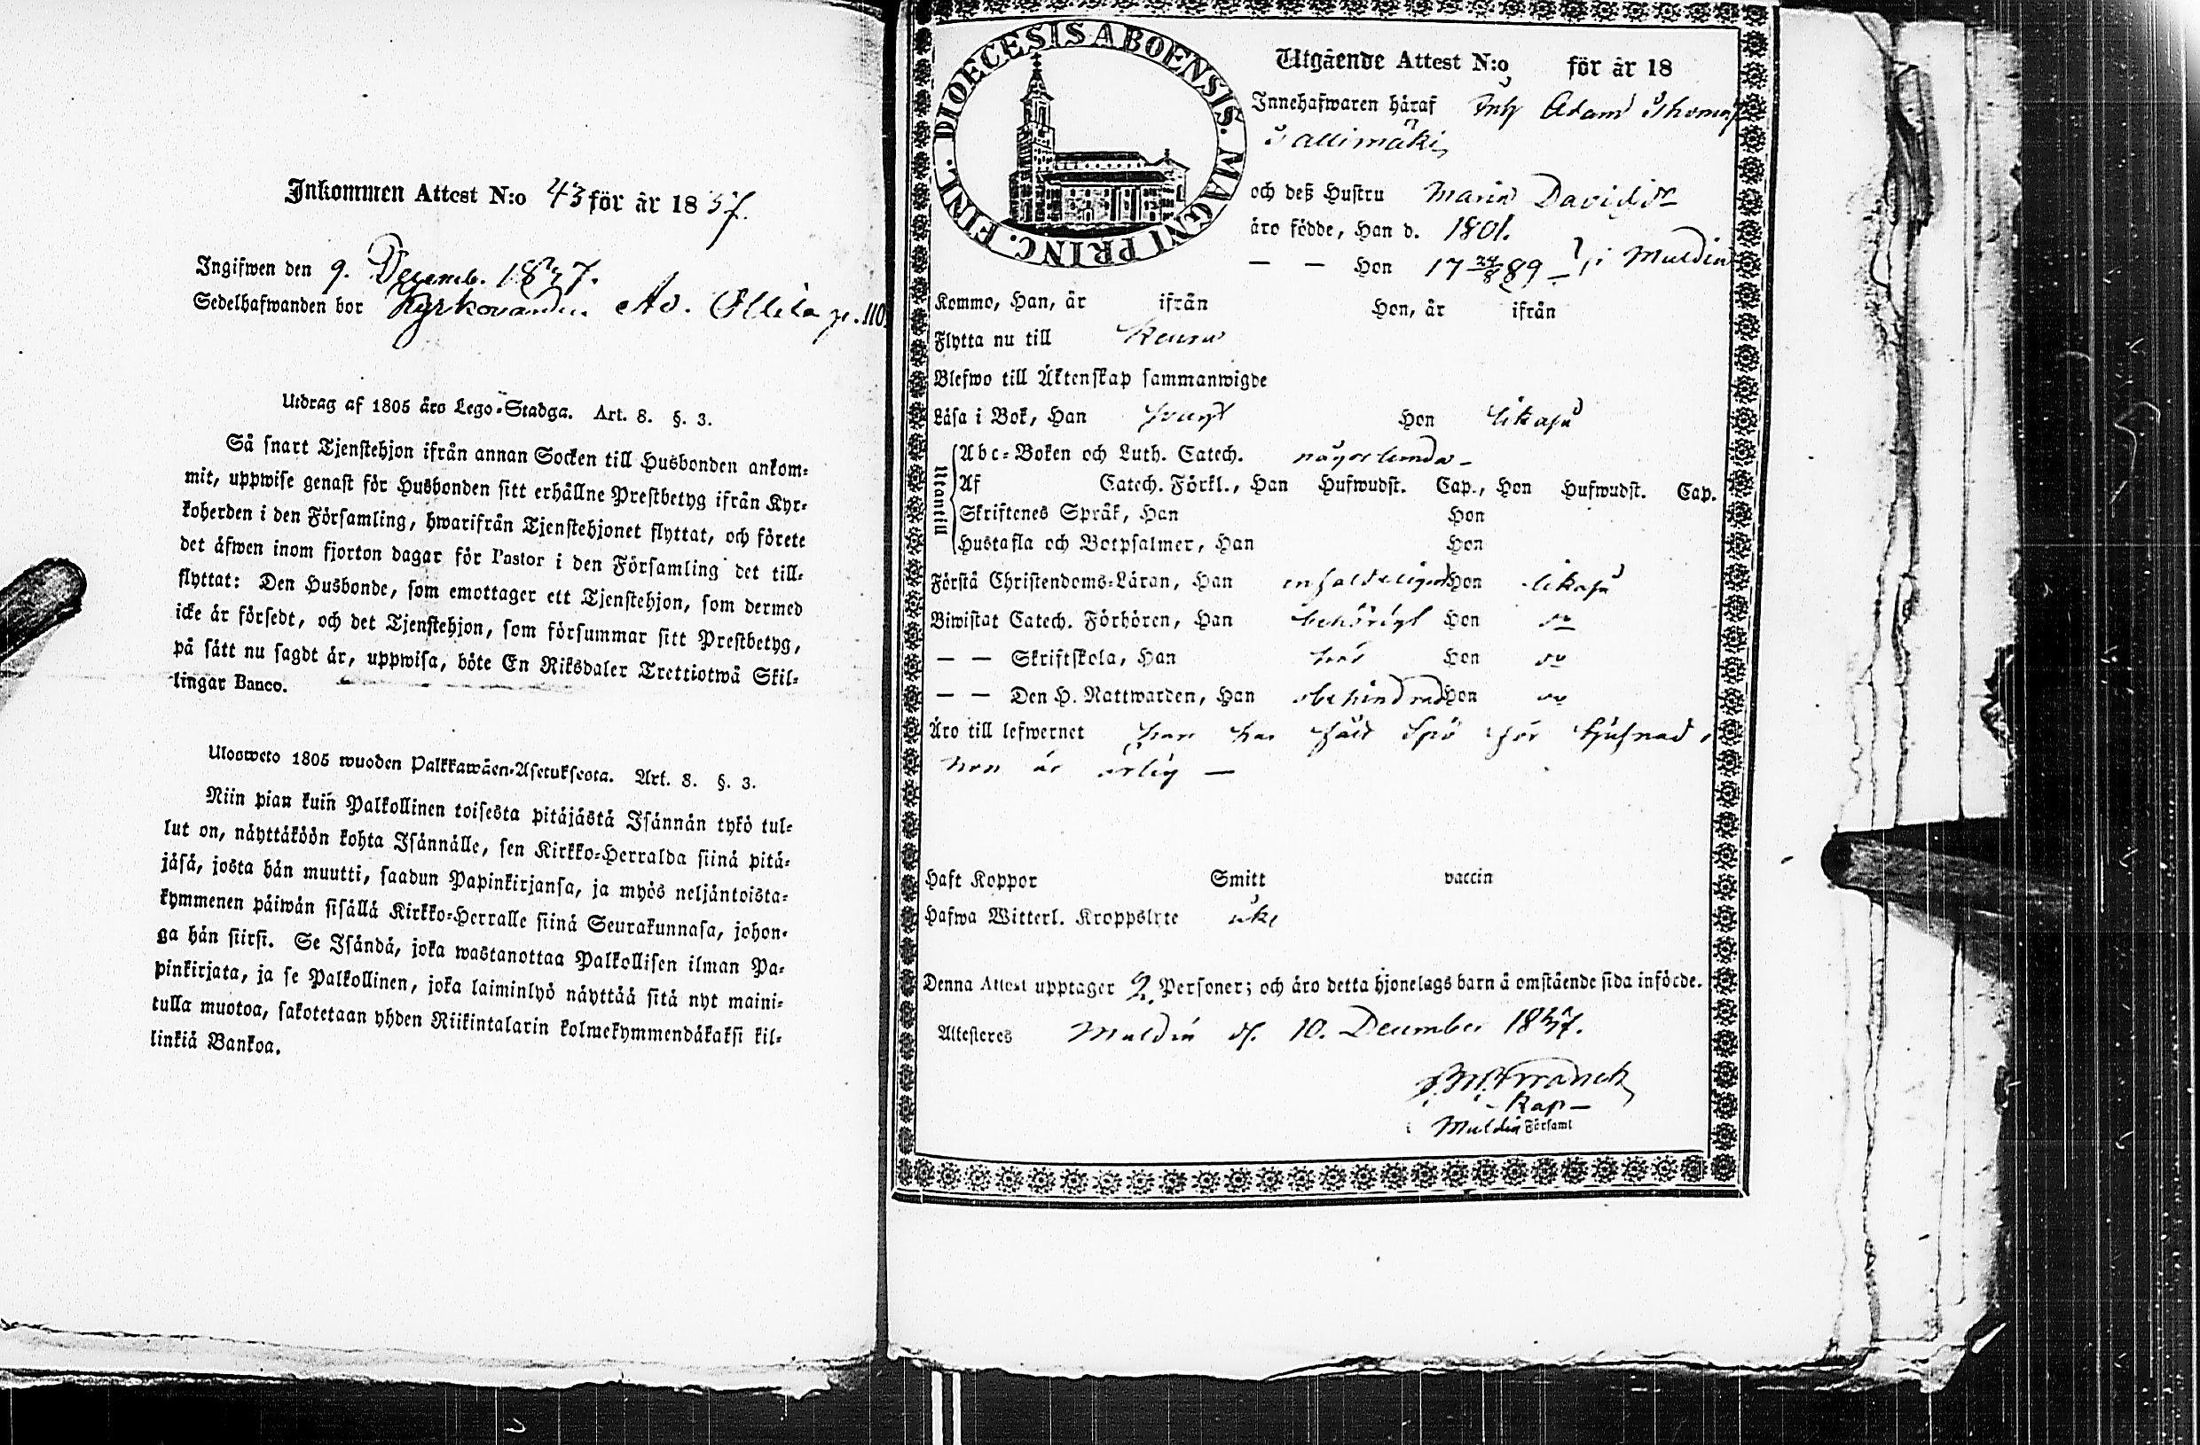 Inkommen Attest N:o 43 för år 1837.
Ingifwen den 9. Decemb. 1837.
Sedelhafwanden bor Kyrkovärden Ad. Ollila p. 110.
Utdrag af 1805 åro Lego-Stadga. Art. 8. §. 3.
Så snart Tjenstehjon ifrån annan Socken till Husbonden ankom-
mit, uppwise genast för Husbonden sitt erhållne Prestbetyg ifrån Kyr-
koherden i den Församling, hwarifrån Tjenstehjonet flyttat, och förete
det åfwen inom fjorton dagar för Pastor i den Församling det till-
flyttat: Den Husbonde, som emottager ett Tjenstehjon, som dermed
icke år försedt, och det Tjenstehjon, som försummar sitt Prestbetyg,
på sått nu sagdt år, uppwisa, böte En Riksdaler Trettiotwå Skil-
lingar Banco.
Ulosweto 1805 wuoden Palkkawäen-Asetuksesta. Art. 8. §. 3.
Niin pian kuin Palkollinen toisesta pitäjästä Isännän tykö tul-
lut on, näyttäköön kohta Isännälle, sen Kirkko-Herralda siinä pitä-
jäsä, josta hän muutti, saadun Papinkirjansa, ja myös neljäntoista-
kymmenen päiwän sisällä Kirkko-Herralle siinä Seurakunnasa, johon-
ga hän siirsi. Se Isändä, joka wastanottaa Palkollisen ilman Pa-
pinkirjata, ja se Palkollinen, joka laiminlyö näyttää sitä nyt maini-
tulla muotoa, sakotetaan yhden Riikintalarin kolmekymmendäkaksi kil-
linkiä Bankoa.
FINL. DIOECESIS ABOENSIS. MAGNI PRINC.
Utgående Attest N:o för år 18
Innehafwaren håraf Inh Adam Thomas
Sallimäki
och deß Hustru Maria Davidsdr
åro födde, Han d. 1801.
— — Hon 17 24/8 89 i Muldia
Kommo, Han, år ifrån Hon, år ifrån
Flytta nu till Keuru
Blefwo till Åktenskap sammanwigde
Låsa i Bok, Han svagt Hon likaså
Utantill
Abc-Boken och Luth. Catech. någorlunda
Af Catech. Förkl., Han Hufwudst. Cap., Hon Hufwudst. Cap.
Skriftenes Språk, Han Hon
Hustafla och Botpsalmer, Han Hon
Förstå Christendoms-Låran, Han enfaldeligen Hon likaså
Biwistat Catech. Förhören, Han behörigt Hon do
— — Skriftskola, Han Hon do
— — Den H. Nattwarden, Han obehindrad Hon do
Åro till lefwernet han har fådt Spö för tjufnad,
hon är ärlig —
Haft Koppor Smitt vaccin
Hafwa Witterl. Kroppslyte icke
Denna Attest upptager 2. Personer; och åro detta hjonelags barn å omstående sida införde.
Attesteres Muldia d. 10. December 1837.
Kap
Muldia Församl